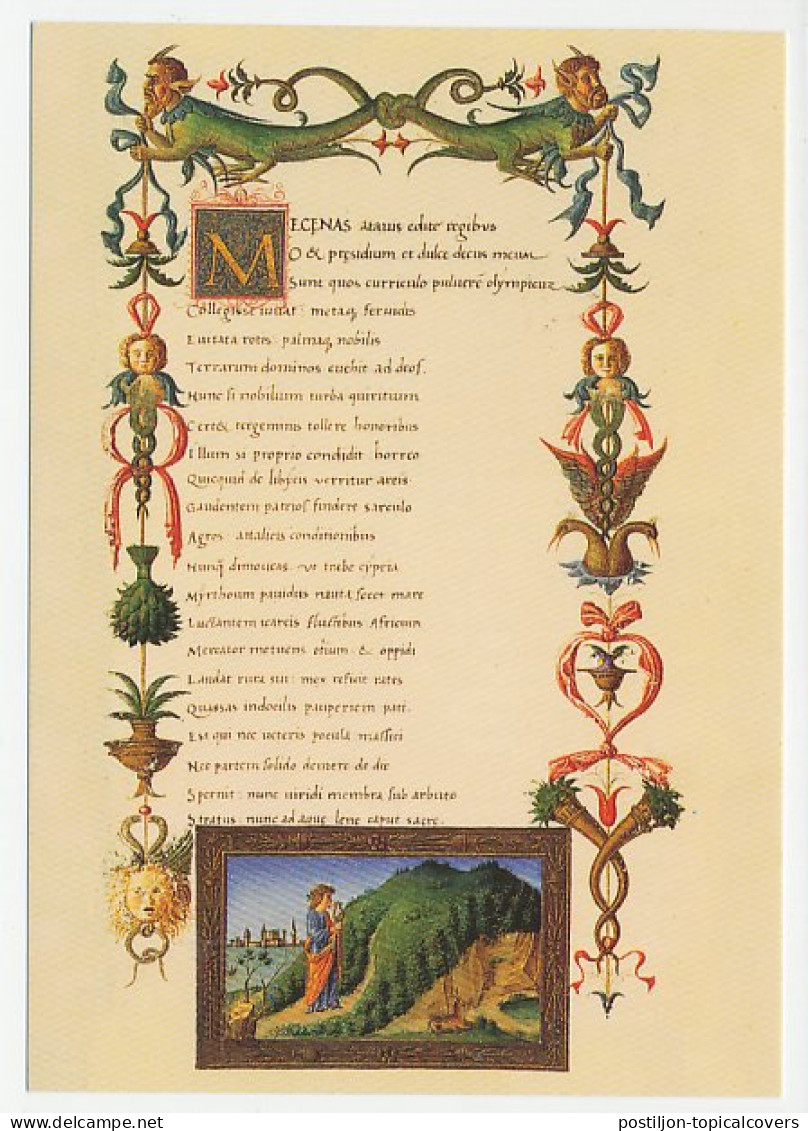 MECENAS atauis edite regibus
O & presidium et dulce decus meum
Sunt quos curriculo puluere olympicum
Collegisse iuuat: metaq; feruidis
Euitata rotis: palmaq; nobilis
Terrarum dominos euehit ad deos.
Hunc si nobilium turba quiritium
Certet tergeminis tollere honoribus
Illum si proprio condidit horreo
Quicquid de libycis verritur areis
Gaudentem patrios findere sarculo
Agros: attalicis conditionibus
Nunq dimoueas: vt trabe cypria
Myrthoum pauidus nauta secet mare
Luctantem icareis fluctibus Africum
Mercator metuens otium & oppidi
Laudat rura sui: mox reficit rates
Quassas indocilis pauperiem pati.
Est qui nec ueteris pocula massici
Nec partem solido demere de die
Spernit: nunc uiridi membra sub arbuto
Stratus: nunc ad aque lene caput sacre.
postiljon-topicalcovers.com